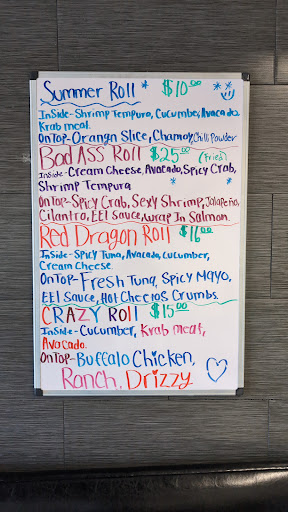 Summer Roll $10.00
InSide-Shrimp Tempura, Cucumber, Avacado
Krab meat.
OnTop-Orange Slice, Chamoy, Chili Powder
Bad Ass Roll $25.00 (Fried)
Inside-Cream Cheese, Avocado, Spicy Crab,
Shrimp Tempura
OnTop-Spicy Crab, Sexy Shrimp, Jalapeño,
Cilantro, EEl Sauce, Wrap In Salmon.
Red Dragon Roll $16.00
InSide-Spicy Tuna, Avacado, Cucumber,
Cream Cheese.
OnTop-Fresh Tuna, Spicy Mayo,
EEl Sauce, Hot Cheetos Crumbs.
CRAZY Roll $15.00
InSide-Cucumber, Krab meat,
Avocado.
OnTop-Buffalo Chicken,
Ranch, Drizzy